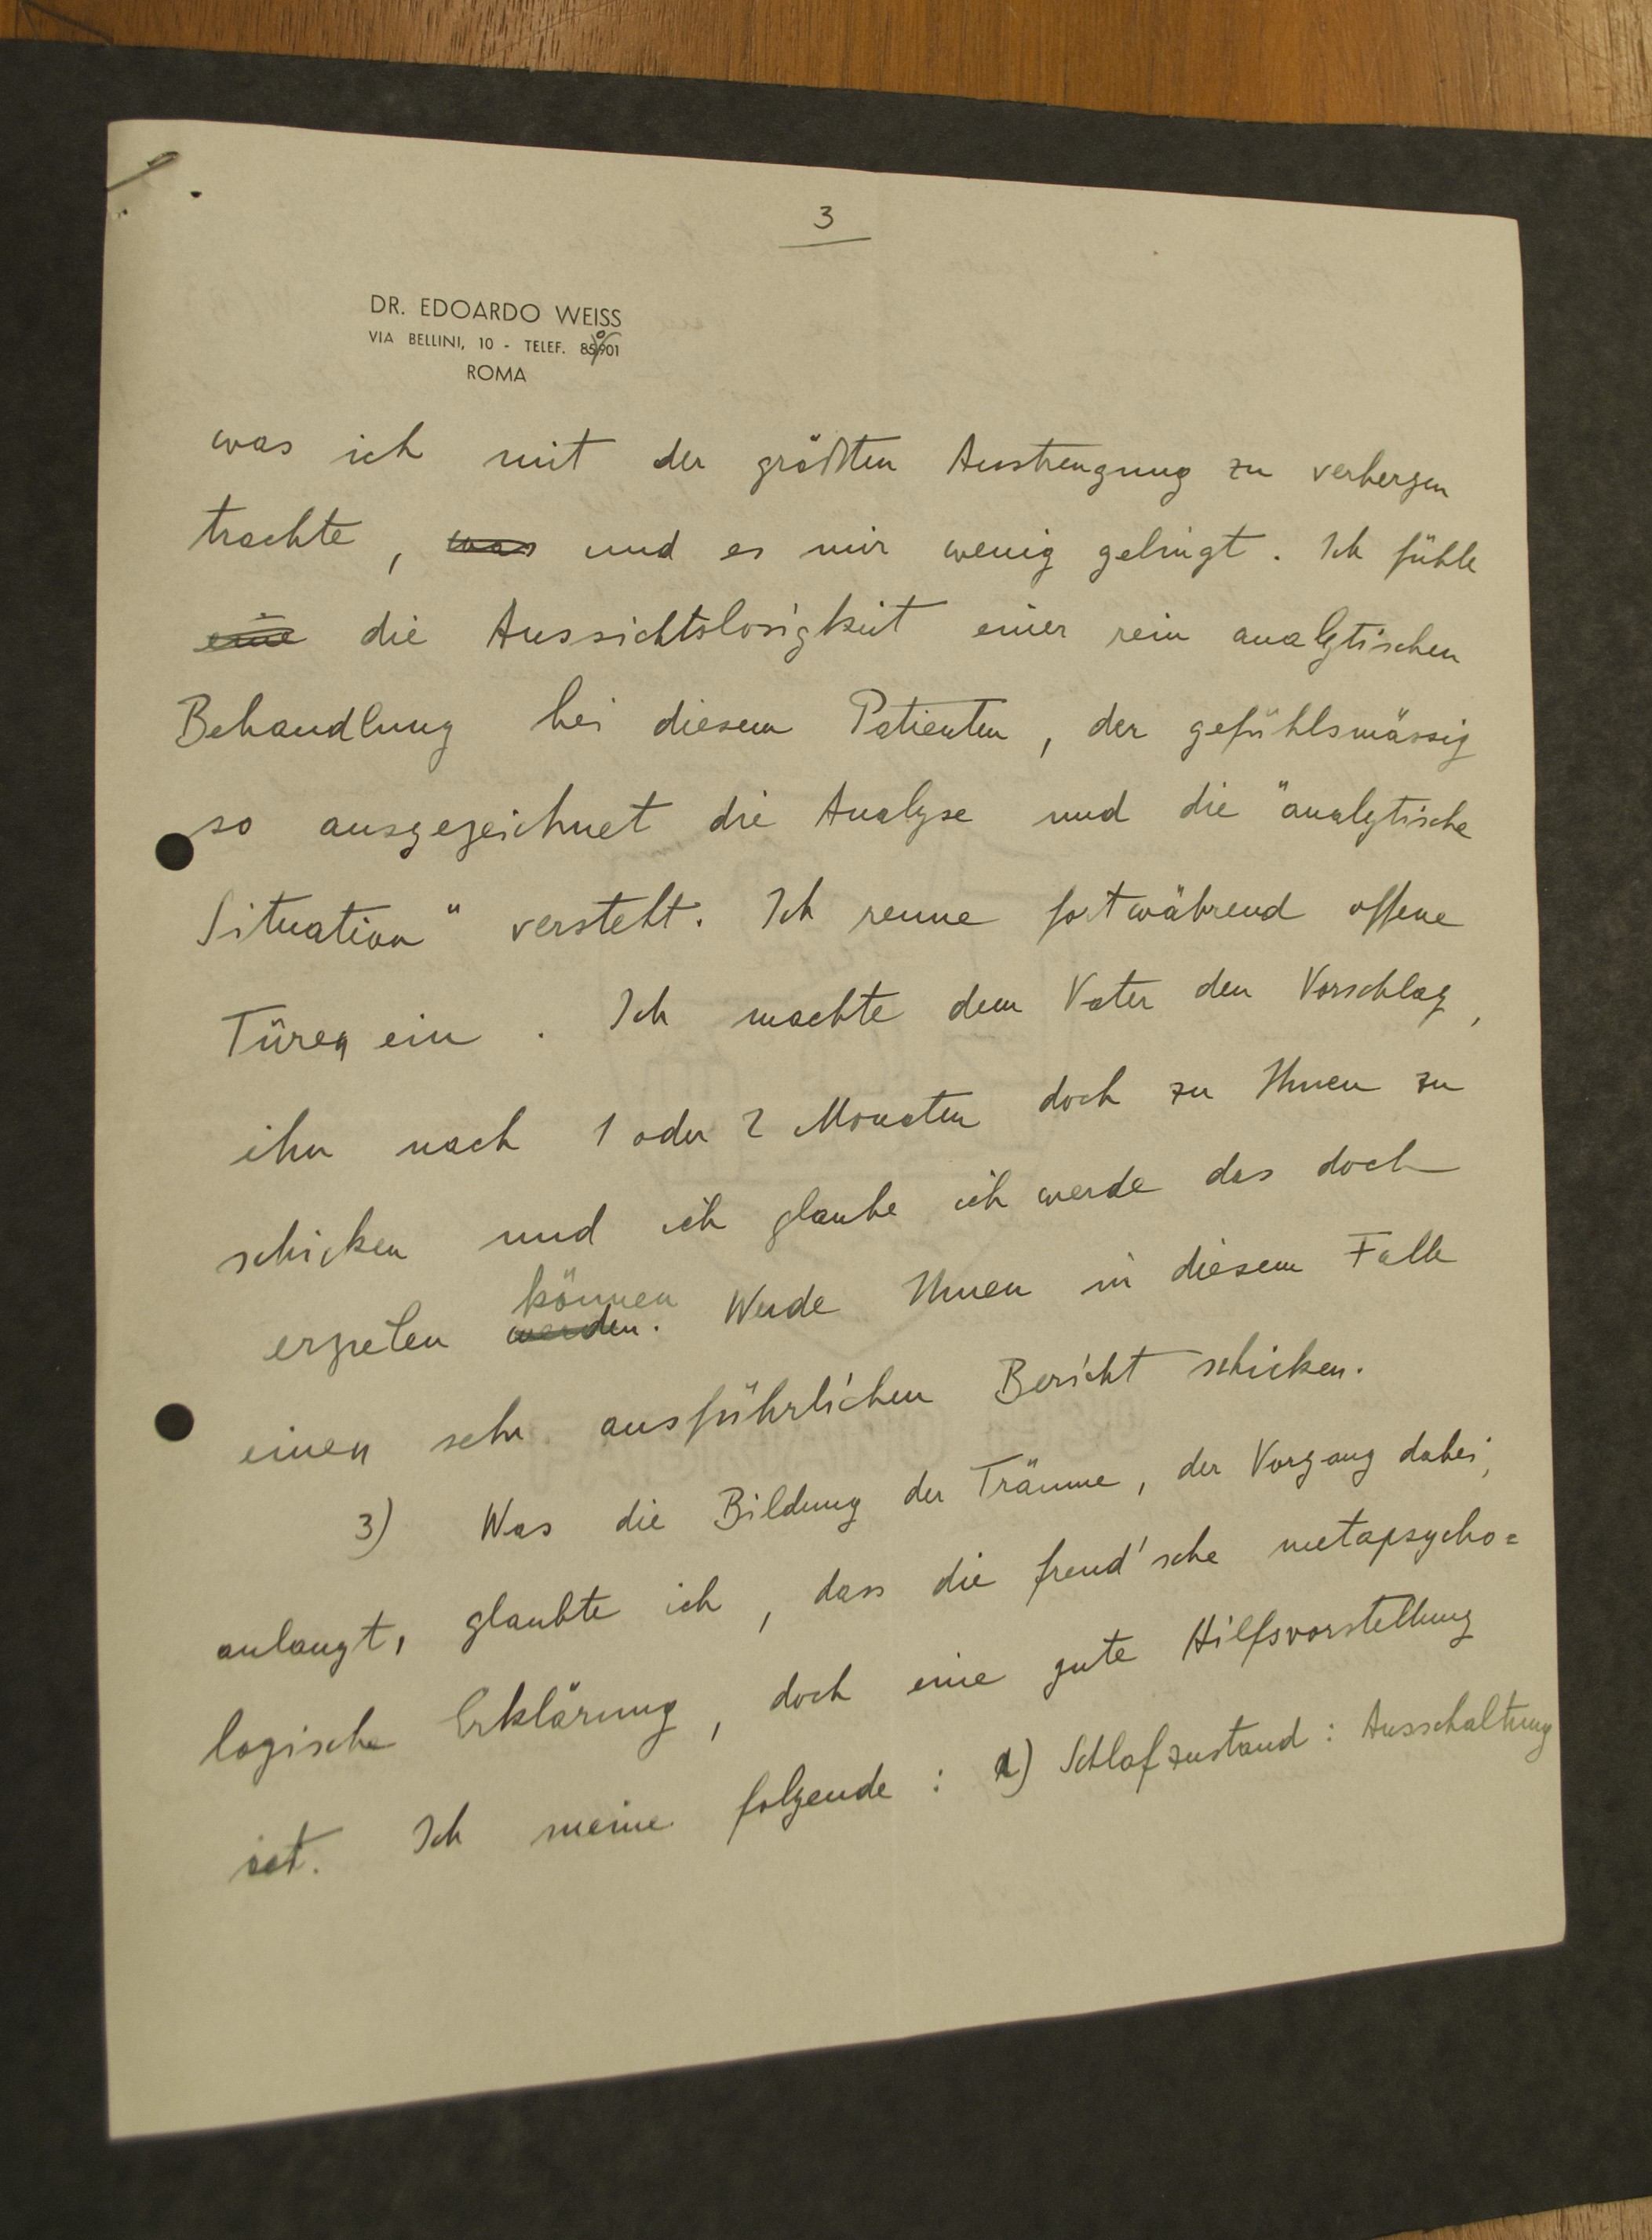 3
DR. EDOARDO WEISS
VIA BELLINI, 10 - TELEF. 85901
ROMA
was ich mit der größten Anstrengung zu verbergen
trachte, was und es mir wenig gelingt. Ich fühle
eine die Aussichtslosigkeit einer rein analytischen
Behandlung bei diesem Patienten, der gefühlsmässig
so ausgezeichnet die Analyse und die "analytische
Situation" versteht. Ich renne fortwährend offene
Türen ein. Ich machte dem Vater den Vorschlag,
ihn nach 1 oder 2 Monaten doch zu Ihnen zu
schicken und ich glaube ich werde das doch
können
erzielen werden. Werde Ihnen in diesem Falle
einen sehr ausführlichen Bericht schicken.
3) Was die Bildung der Träume, der Vorgang dabei,
anlangt, glaubte ich, dass die freud'sche metapsycho=
logische Erklärung, doch eine gute Hilfsvorstellung
ist. Ich meine folgende: Schlafzustand: Ausschaltung